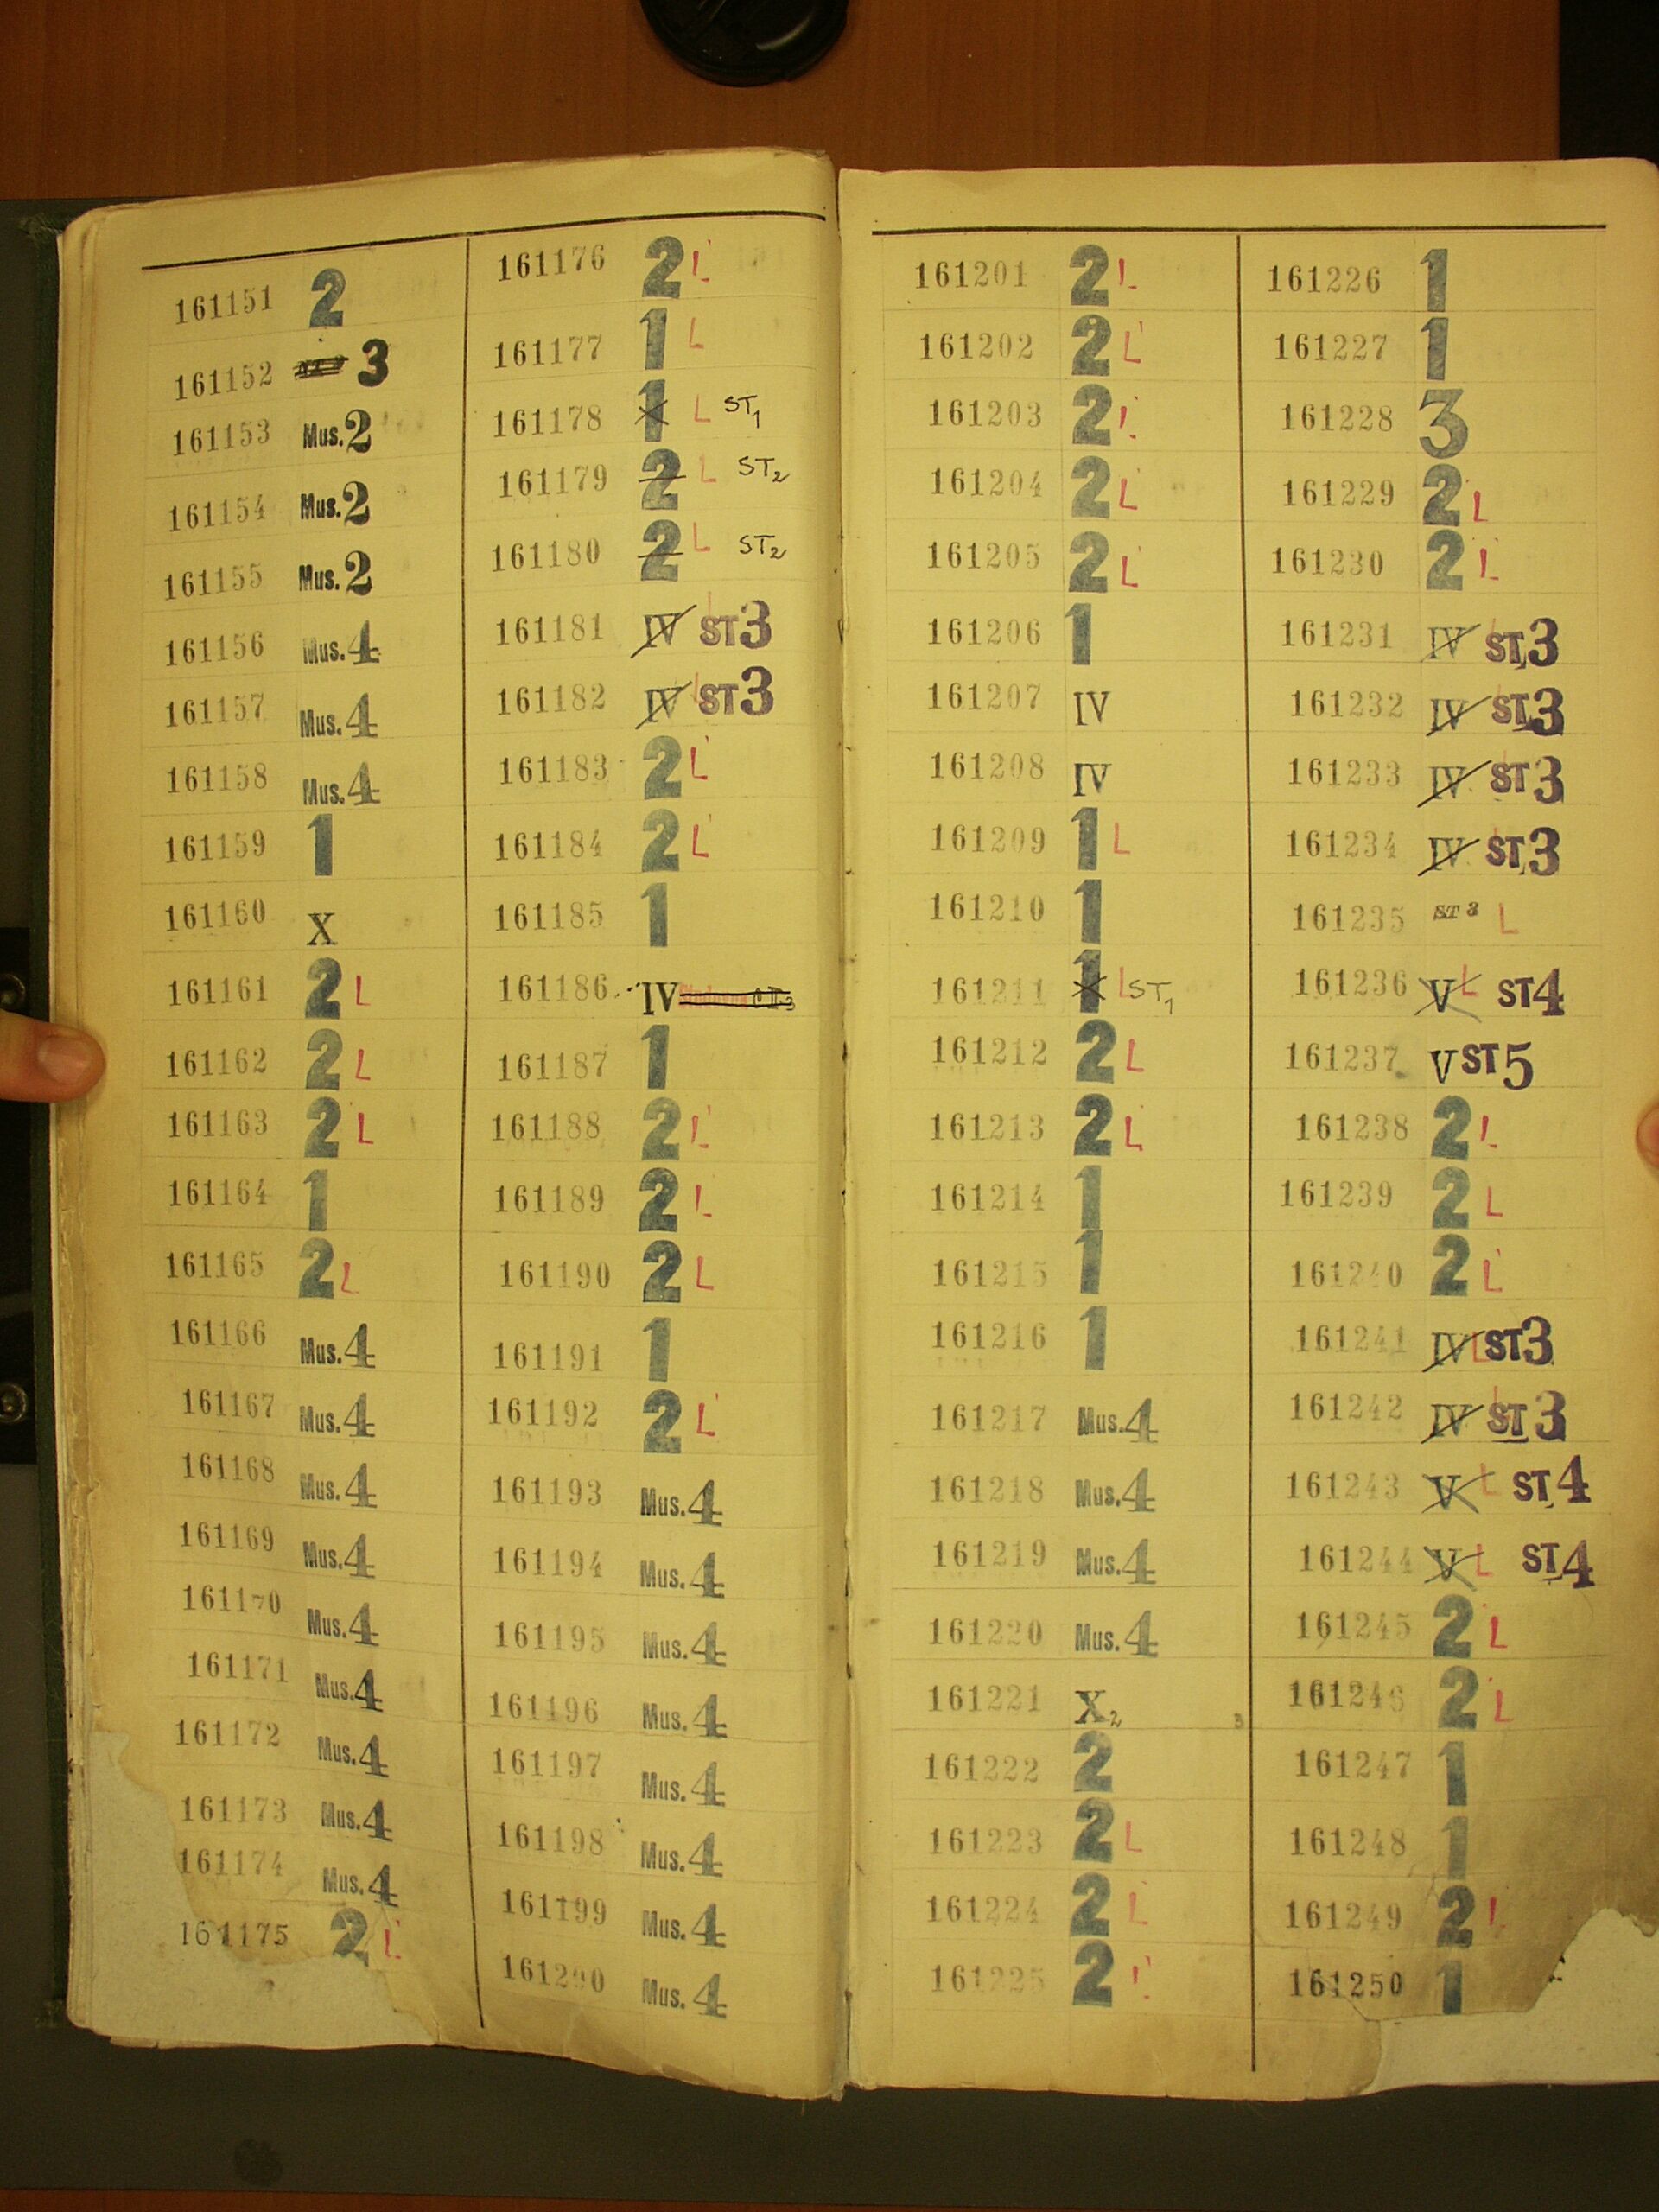 161151 2
161152 3
161153 Mus.2
161154 Mus.2
161155 Mus.2
161156 Mus.4
161157 Mus.4
161158 Mus.4
161159 1
161160 X
161161 2 L
161162 2 L
161163 2 L
161164 1
161165 2 L
161166 Mus.4
161167 Mus.4
161168 Mus.4
161169 Mus.4
161170 Mus.4
161171 Mus.4
161172 Mus.4
161173 Mus.4
161174 Mus.4
161175 2 L
161176 2 L
161177 1 L
161178 1 L ST1
161179 2 L ST2
161180 2 L ST2
161181 IV L ST3
161182 IV L ST3
161183 2 L
161184 2 L
161185 1
161186 IV
161187 1
161188 2 L
161189 2 L
161190 2 L
161191 1
161192 2 L
161193 Mus.4
161194 Mus.4
161195 Mus.4
161196 Mus.4
161197 Mus.4
161198 Mus.4
161199 Mus.4
161200 Mus.4
161201 2 L
161202 2 L
161203 2 L
161204 2 L
161205 2 L
161206 1
161207 IV
161208 IV
161209 1 L
161210 1
161211 1 L ST1
161212 2 L
161213 2 L
161214 1
161215 1
161216 1
161217 Mus.4
161218 Mus.4
161219 Mus.4
161220 Mus.4
161221 X2
161222 2
161223 2 L
161224 2 L
161225 2 L
161226 1
161227 1
161228 3
161229 2 L
161230 2 L
161231 IV L ST3
161232 IV L ST3
161233 IV L ST3
161234 IV L ST3
161235 ST 3 L
161236 V L ST4
161237 V ST5
161238 2 L
161239 2 L
161240 2 L
161241 IV L ST3
161242 IV L ST3
161243 V L ST4
161244 V L ST4
161245 2 L
161246 2 L
161247 1
161248 1
161249 2 L
161250 1